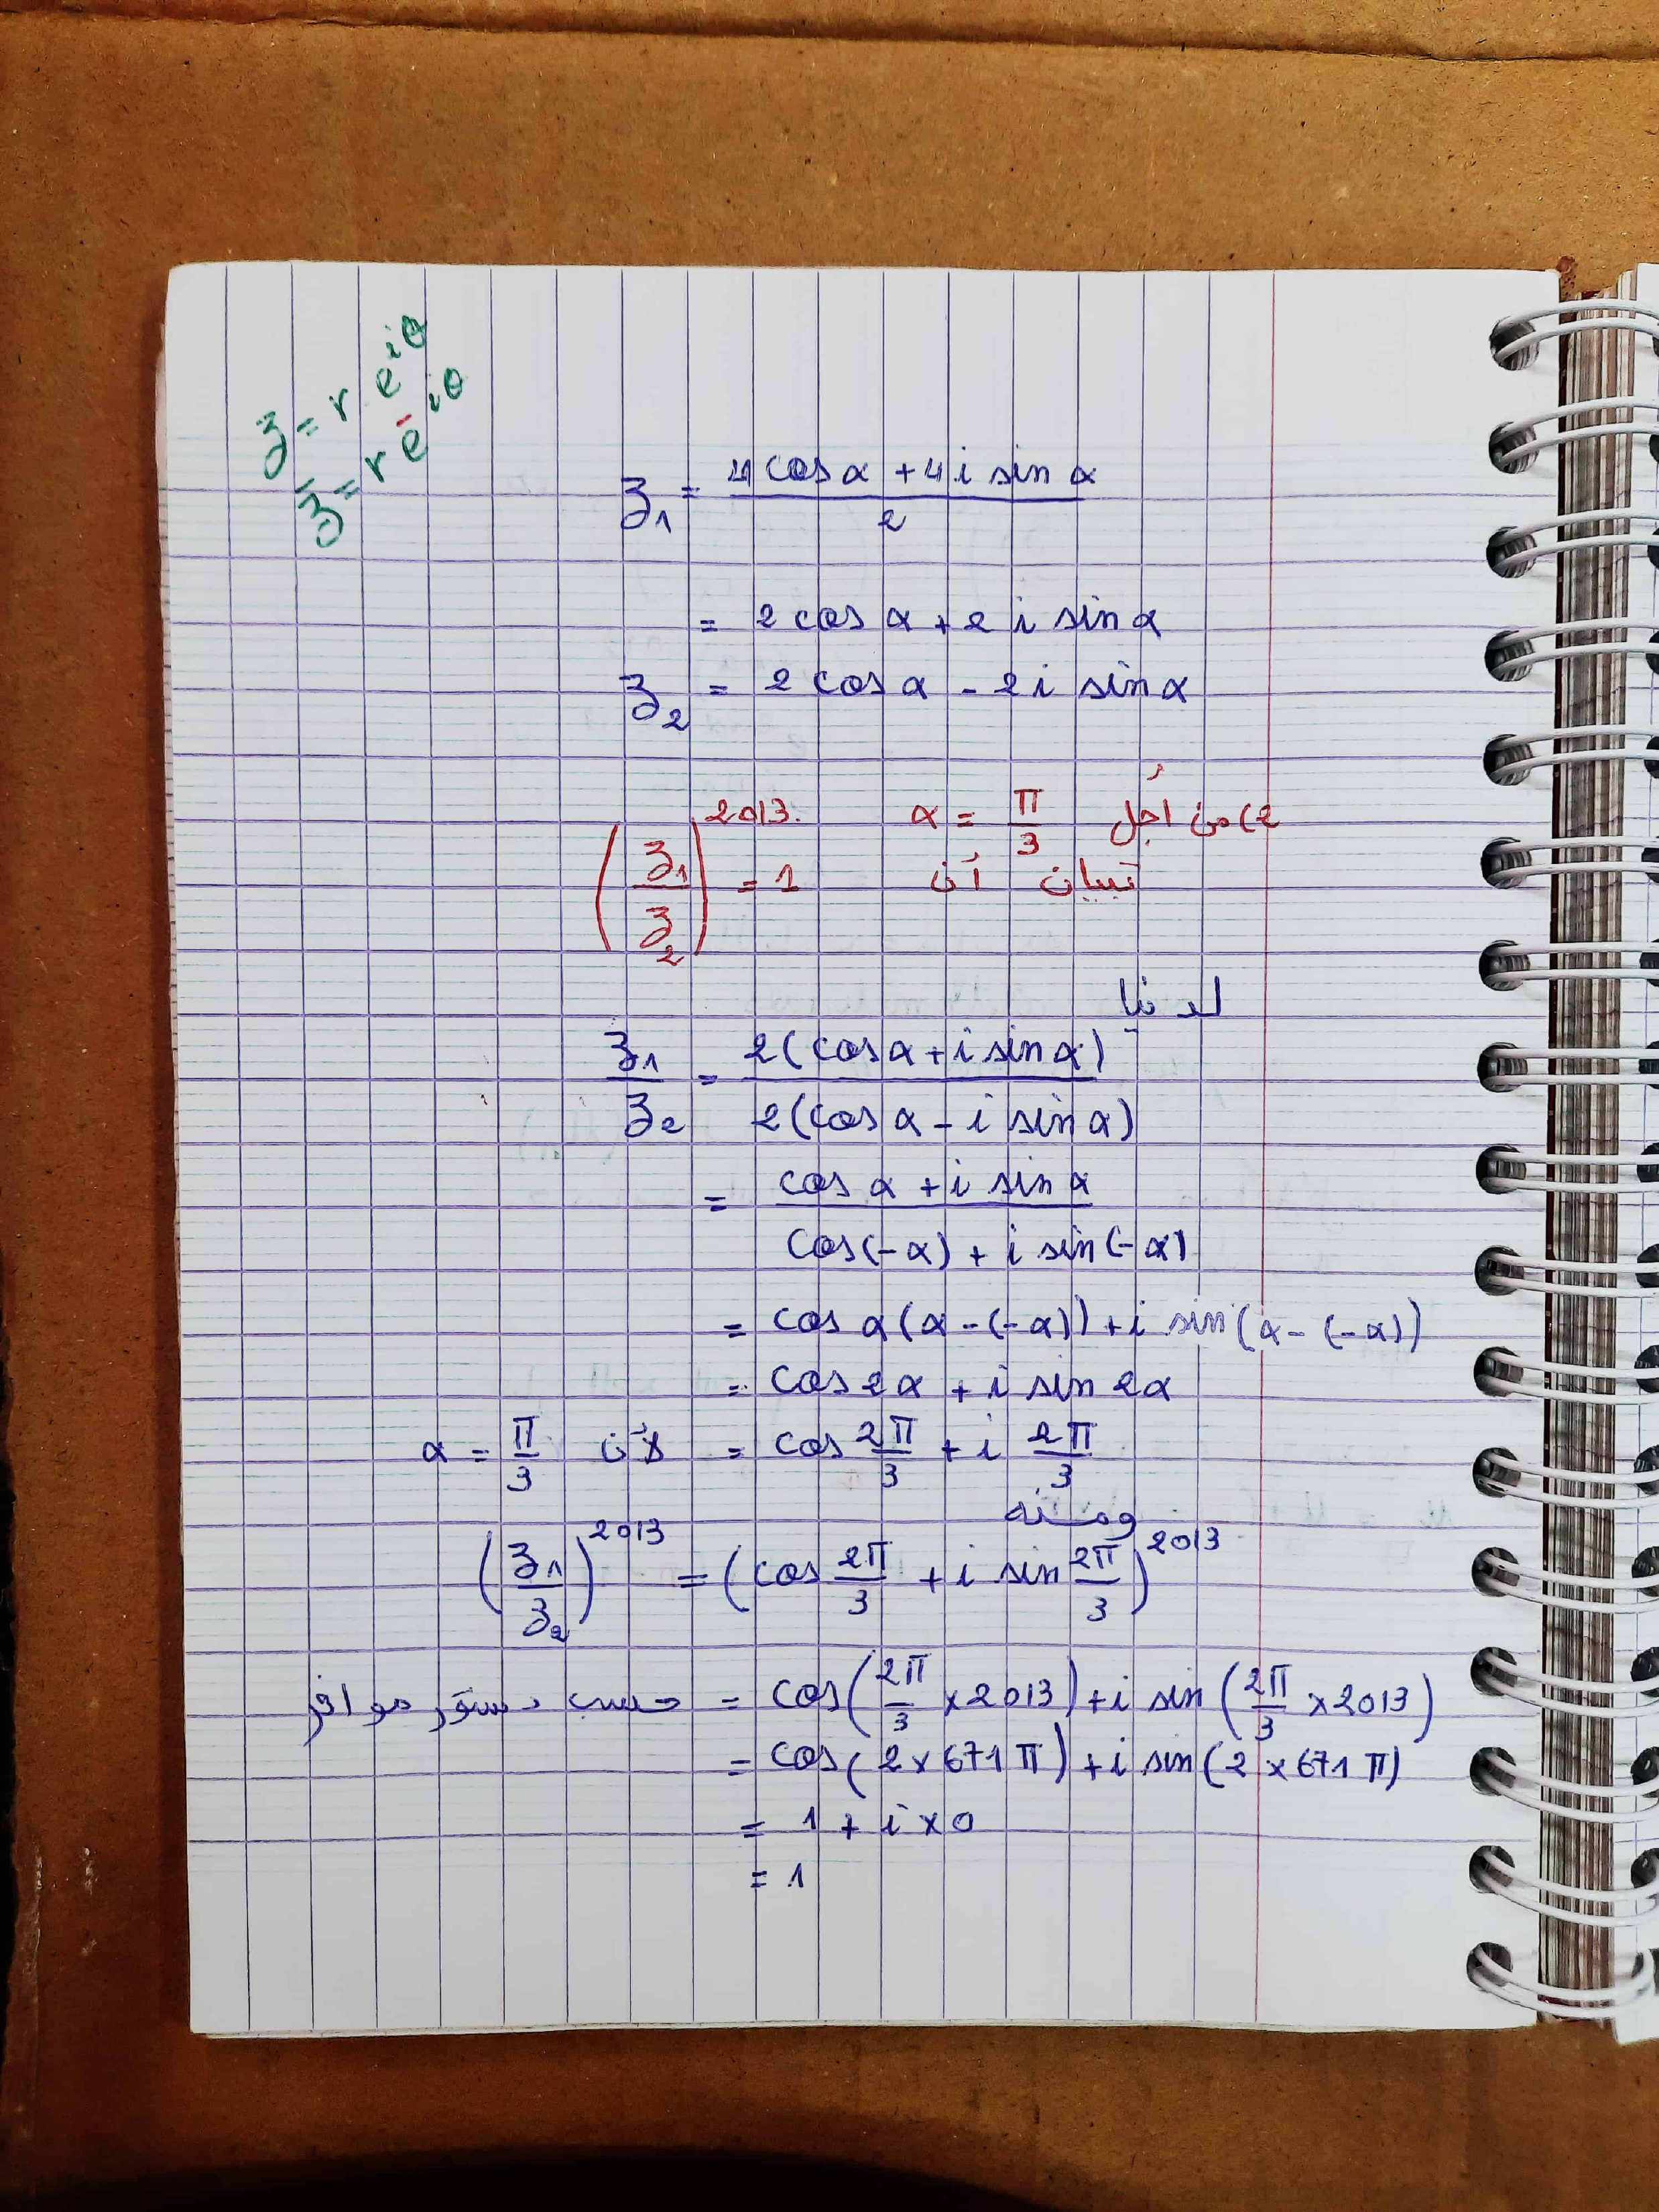 z = r e^{iθ}
z̄ = r e^{-iθ}
z₁ = (4 cos α + 4 i sin α) / 2
= 2 cos α + 2 i sin α
z₂ = 2 cos α - 2 i sin α
2) من أجل α = π/3
تبيان أن (z₁/z₂)^2013 = 1
لدينا
z₁/z₂ = 2(cos α + i sin α) / 2(cos α - i sin α)
= (cos α + i sin α) / (cos(-α) + i sin(-α))
= cos α(α - (-α)) + i sin(α - (-α))
= cos 2α + i sin 2α
= cos 2π/3 + i 2π/3 لأن α = π/3
ومنه
(z₁/z₂)^2013 = (cos 2π/3 + i sin 2π/3)^2013
= cos(2π/3 × 2013) + i sin(2π/3 × 2013) حسب دستور موافر
= cos(2 × 671 π) + i sin(2 × 671 π)
= 1 + i × 0
= 1